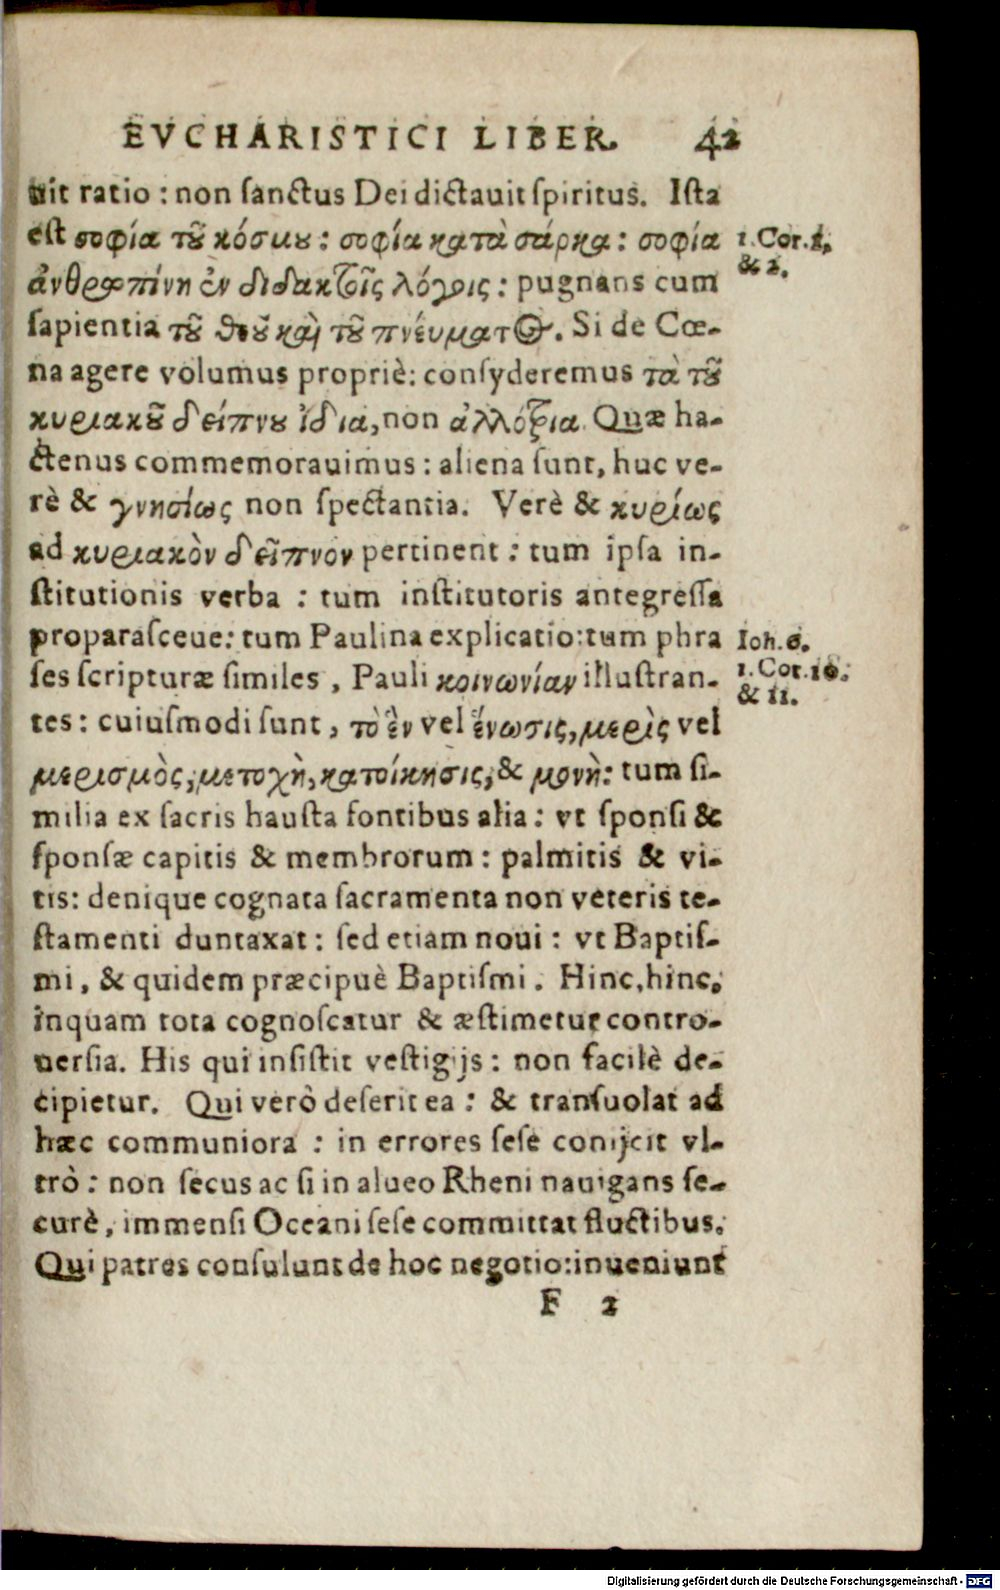 EVCHARISTICI LIBER. 42
uit ratio : non ſanctus Dei dictauit ſpiritus. Iſta
eſt σοφία τοῦ κόσμου : σοφία κατὰ σάρκα : σοφία
ἀνθρωπίνη ἐν διδακτοῖς λόγοις : pugnans cum
ſapientia τοῦ θεοῦ καὶ τοῦ πνέυματος. Si de Cœ-
na agere volumus propriè: conſyderemus τὰ τοῦ
κυριακοῦ δείπνου ἰδια, non ἀλλότρια. Quæ ha-
ctenus commemorauimus : aliena ſunt, huc ve-
rè & γνησίως non ſpectantia. Verè & κυρίως
ad κυριακὸν δεῖπνον pertinent : tum ipſa in-
ſtitutionis verba : tum inſtitutoris antegreſſa
proparaſceue: tum Paulina explicatio: tum phra
ſes ſcripturæ ſimiles, Pauli κοινωνίαν illuſtran-
tes : cuiuſmodi ſunt, τὸ ἓν vel ἕνωσις, μερὶς vel
μερισμὸς, μετοχὴ, κατοίκησις, & μονὴ: tum ſi-
milia ex ſacris hauſta fontibus alia : vt ſponſi &
ſponſæ capitis & membrorum : palmitis & vi-
tis: denique cognata ſacramenta non veteris te-
ſtamenti duntaxat : ſed etiam noui : vt Baptiſ-
mi, & quidem præcipuè Baptiſmi. Hinc, hinc,
inquam tota cognoſcatur & æſtimetur contro-
uerſia. His qui inſiſtit veſtigijs : non facilè de-
cipietur. Qui verò deſerit ea : & tranſuolat ad
hæc communiora : in errores ſeſe conijcit vl-
trò : non ſecus ac ſi in alueo Rheni nauigans ſe-
curè, immenſi Oceani ſeſe committat fluctibus.
Qui patres conſulunt de hoc negotio: inueniunt
F 2
1. Cor. 1.
& 2.
Ioh. 6.
1. Cor. 10.
& 11.
Digitalisierung gefördert durch die Deutsche Forschungsgemeinschaft - DFG